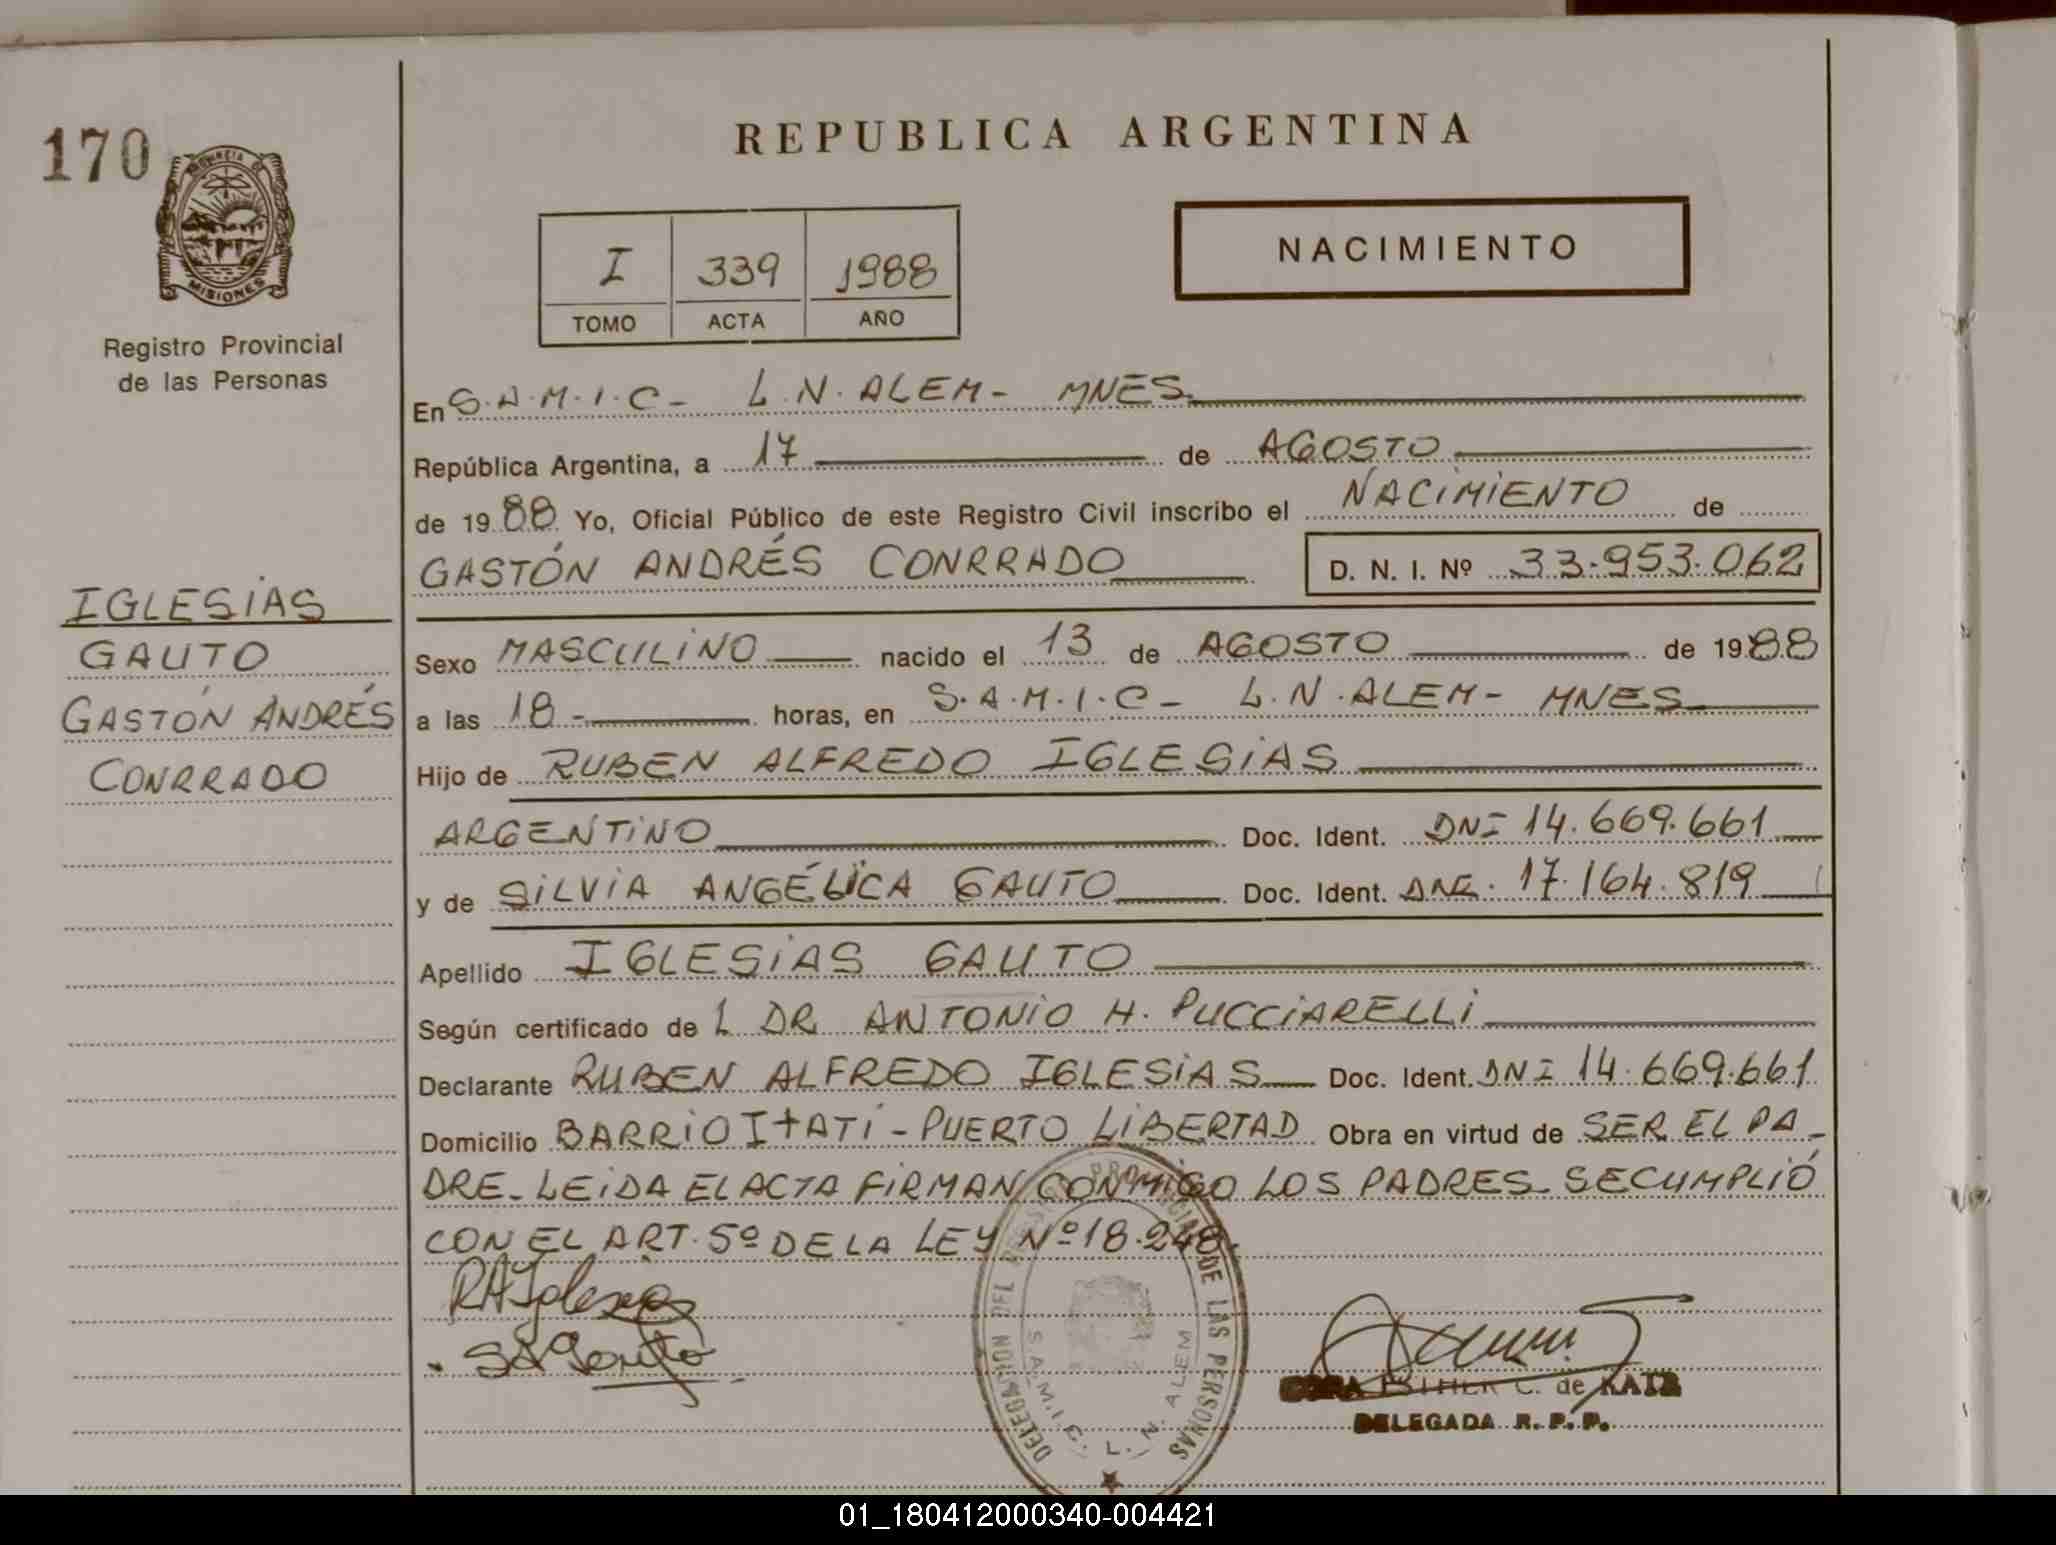 170
PROVINCIA DE
MISIONES
Registro Provincial
de las Personas
IGLESIAS
GAUTO
GASTÓN ANDRÉS
CONRRADO
REPUBLICA ARGENTINA
I 339 1988
TOMO ACTA AÑO
NACIMIENTO
En S.A.M.I.C- L.N.ALEM- MNES.
República Argentina, a 17 de AGOSTO
de 1988 Yo, Oficial Público de este Registro Civil inscribo el NACIMIENTO de
GASTÓN ANDRÉS CONRRADO D. N. I. Nº 33.953.062
Sexo MASCULINO nacido el 13 de AGOSTO de 1988
a las 18- horas, en S.A.M.I.C- L.N.ALEM- MNES
Hijo de RUBEN ALFREDO IGLESIAS
ARGENTINO Doc. Ident. DNI 14.669.661
y de SILVIA ANGÉLICA GAUTO Doc. Ident. 17.164.819
Apellido IGLESIAS GAUTO
Según certificado de L DR ANTONIO H. PUCCIARELLI
Declarante RUBEN ALFREDO IGLESIAS Doc. Ident. DNI 14.669.661
Domicilio BARRIO ITATÍ - PUERTO LIBERTAD Obra en virtud de SER EL PA-
DRE. LEIDA EL ACTA FIRMAN CONMIGO LOS PADRES. SE CUMPLIÓ
CON EL ART. 5º DE LA LEY Nº 18.248.
RAIglesias
SAGauto
DELEGACION DEL REGISTRO PROVINCIAL DE LAS PERSONAS
S.A.M.I.C. L. N. ALEM
ESTHER C. de KATZ
DELEGADA R. P. P.
01_180412000340-004421